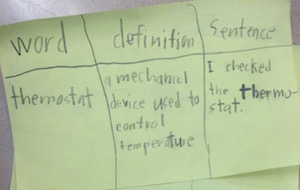 word definition Sentence
themostat
a mechanicl
device used to
control
temperature
I checked
the thermo-
stat.